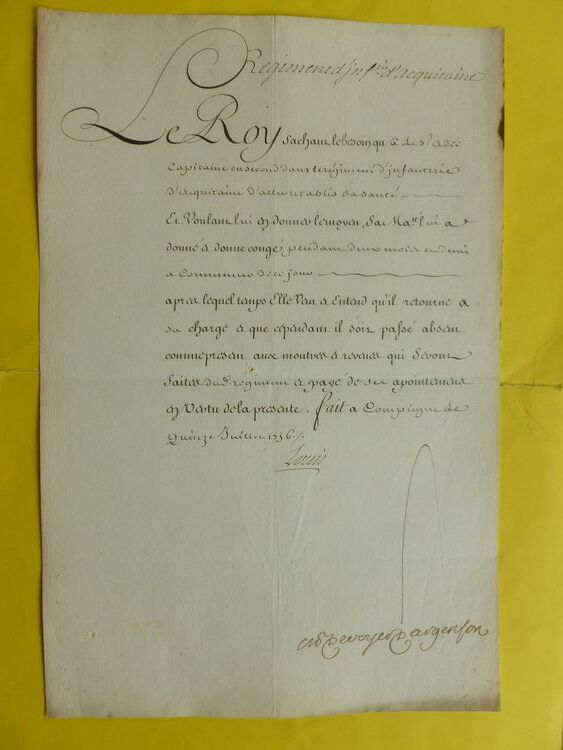 Regiment d'jnf.rie d'acquitaine
Le Roy sachant le besoin qu'a le s.r
Capitaine en second dans le regiment d'jnfanterie
d'acquitaine d'aller retablir sa santé
Et Voulant lui en donner le moyen, Sa Ma.té lui a
donné et donne congé pendant deux mois et demi
a Commencer de ce jour
apres lequel temps Elle Veut et Entend qu'il retourne a
sa charge et que cependant il soit passé absent
comme present aux montres et reveues qui Seront
faites dud. regiment et payé de ses apointemens
en Vertu de la presente. fait a Compiegne le
Quinze Juillet 1756./.
Louis
De voyer D'argenson